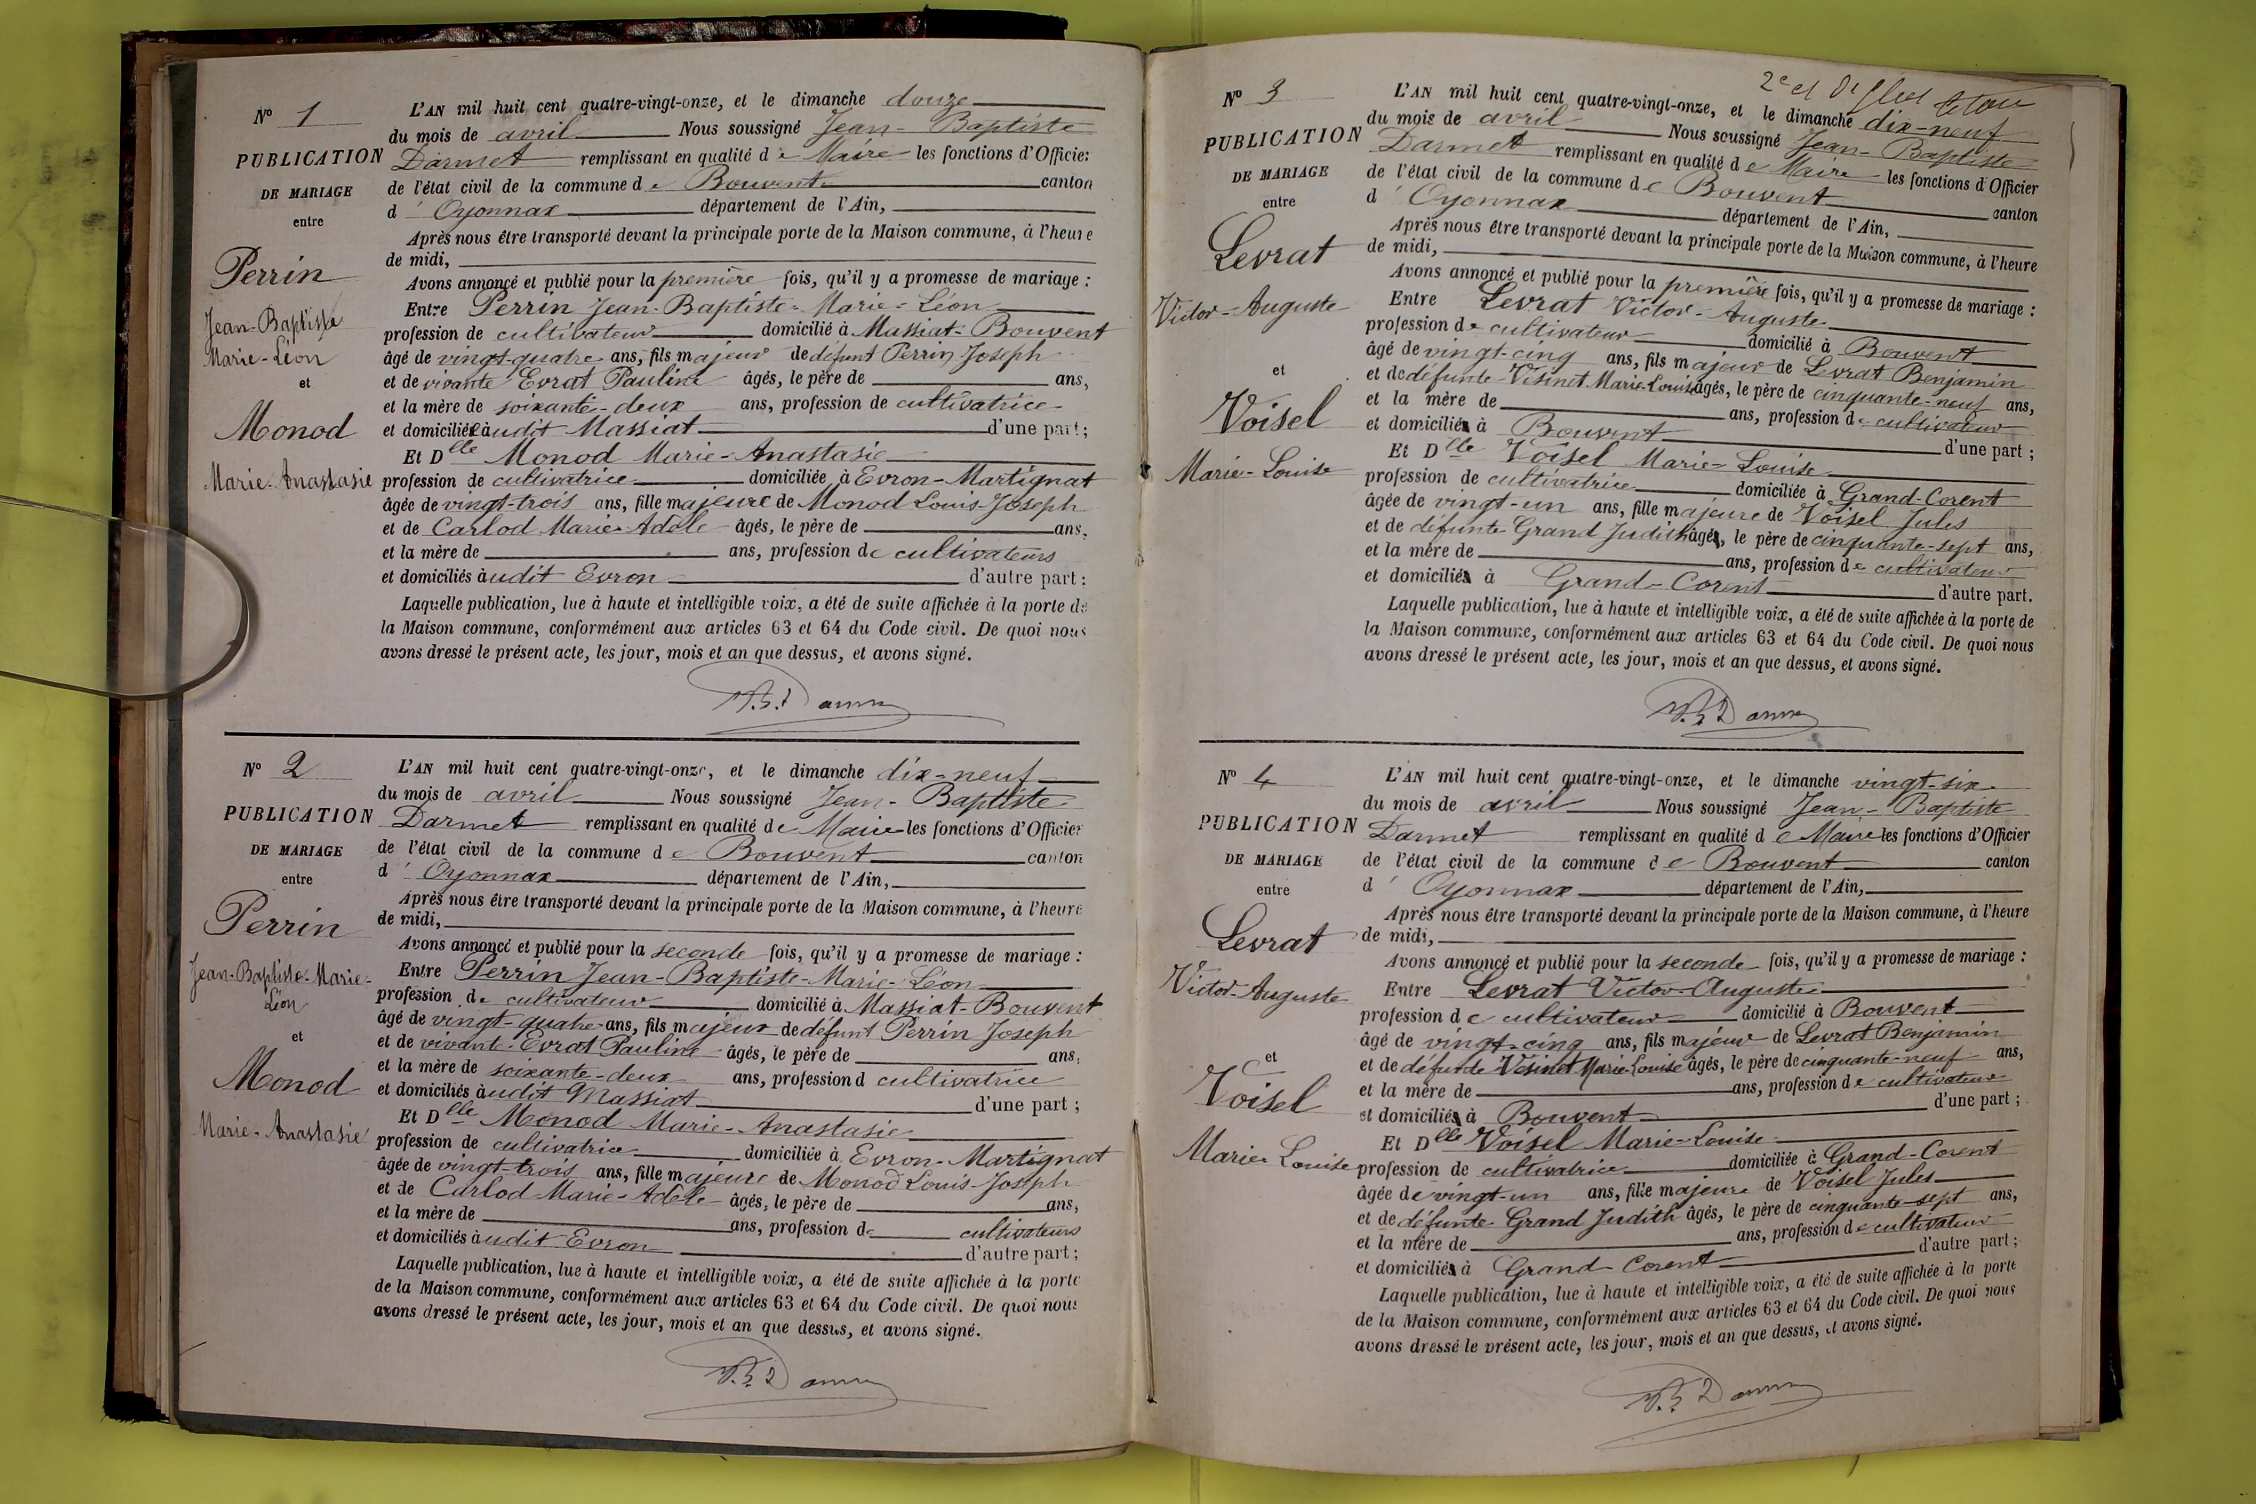 N° 1
PUBLICATION
DE MARIAGE
entre
Perrin
Jean-Baptiste
Marie-Léon
et
Monod
Marie-Anastasie
L'AN mil huit cent quatre-vingt-onze, et le dimanche douze
du mois de avril Nous soussigné Jean-Baptiste
Darmet remplissant en qualité de Maire les fonctions d'Officier
de l'état civil de la commune de Bouvent canton
d'Oyonnax département de l'Ain,
Après nous être transporté devant la principale porte de la Maison commune, à l'heure
de midi,
Avons annoncé et publié pour la première fois, qu'il y a promesse de mariage :
Entre Perrin Jean-Baptiste-Marie-Léon
profession de cultivateur domicilié à Massiat-Bouvent
âgé de vingt-quatre ans, fils majeur de défunt Perrin Joseph
et de vivante Evrat Pauline âgés, le père de ans,
et la mère de soixante-deux ans, profession de cultivatrice
et domiciliée audit Massiat d'une part ;
Et Dlle Monod Marie-Anastasie
profession de cultivatrice domiciliée à Evron-Martignat
âgée de vingt-trois ans, fille majeure de Monod Louis-Joseph
et de Carlod Marie-Adèle âgés, le père de ans,
et la mère de ans, profession de cultivateurs
et domiciliés audit Evron d'autre part :
Laquelle publication, lue à haute et intelligible voix, a été de suite affichée à la porte de
la Maison commune, conformément aux articles 63 et 64 du Code civil. De quoi nous
avons dressé le présent acte, les jour, mois et an que dessus, et avons signé.
N° 2
PUBLICATION
DE MARIAGE
entre
Perrin
Jean-Baptiste-Marie-
Léon
et
Monod
Marie-Anastasie
L'AN mil huit cent quatre-vingt-onze, et le dimanche dix-neuf
du mois de avril Nous soussigné Jean-Baptiste
Darmet remplissant en qualité de Maire les fonctions d'Officier
de l'état civil de la commune de Bouvent canton
d'Oyonnax département de l'Ain,
Après nous être transporté devant la principale porte de la Maison commune, à l'heure
de midi,
Avons annoncé et publié pour la seconde fois, qu'il y a promesse de mariage :
Entre Perrin Jean-Baptiste-Marie-Léon
profession de cultivateur domicilié à Massiat-Bouvent
âgé de vingt-quatre ans, fils majeur de défunt Perrin Joseph
et de vivante Evrat Pauline âgés, le père de ans,
et la mère de soixante-deux ans, profession d cultivatrice
et domiciliés audit Massiat d'une part ;
Et Dlle Monod Marie-Anastasie
profession de cultivatrice domiciliée à Evron-Martignat
âgée de vingt-trois ans, fille majeure de Monod Louis-Joseph
et de Carlod Marie-Adèle âgés, le père de ans,
et la mère de ans, profession de cultivateurs
et domiciliés audit Evron d'autre part ;
Laquelle publication, lue à haute et intelligible voix, a été de suite affichée à la porte
de la Maison commune, conformément aux articles 63 et 64 du Code civil. De quoi nous
avons dressé le présent acte, les jour, mois et an que dessus, et avons signé.
N° 3
PUBLICATION
DE MARIAGE
entre
Levrat
Victor-Auguste
et
Voisel
Marie-Louise
L'AN mil huit cent quatre-vingt-onze, et le dimanche dix-neuf
du mois de avril Nous soussigné Jean-Baptiste
Darmet remplissant en qualité de Maire les fonctions d'Officier
de l'état civil de la commune de Bouvent canton
d'Oyonnax département de l'Ain,
Après nous être transporté devant la principale porte de la Maison commune, à l'heure
de midi,
Avons annoncé et publié pour la première fois, qu'il y a promesse de mariage :
Entre Levrat Victor-Auguste
profession de cultivateur domicilié à Bouvent
âgé de vingt-cinq ans, fils majeur de Levrat Benjamin
et de défunte Vésinet Marie-Louise âgés, le père de cinquante-neuf ans,
et la mère de ans, profession de cultivateur
et domicilié à Bouvent d'une part ;
Et Dlle Voisel Marie-Louise
profession de cultivatrice domiciliée à Grand-Corent
âgée de vingt-un ans, fille majeure de Voisel Jules
et de défunte Grand Judith âgé, le père de cinquante-sept ans,
et la mère de ans, profession de cultivateur
et domicilié à Grand-Corent d'autre part.
Laquelle publication, lue à haute et intelligible voix, a été de suite affichée à la porte de
la Maison commune, conformément aux articles 63 et 64 du Code civil. De quoi nous
avons dressé le présent acte, les jour, mois et an que dessus, et avons signé.
N° 4
PUBLICATION
DE MARIAGE
entre
Levrat
Victor-Auguste
et
Voisel
Marie-Louise
L'AN mil huit cent quatre-vingt-onze, et le dimanche vingt-six
du mois de avril Nous soussigné Jean-Baptiste
Darmet remplissant en qualité de Maire les fonctions d'Officier
de l'état civil de la commune de Bouvent canton
d'Oyonnax département de l'Ain,
Après nous être transporté devant la principale porte de la Maison commune, à l'heure
de midi,
Avons annoncé et publié pour la seconde fois, qu'il y a promesse de mariage :
Entre Levrat Victor-Auguste
profession de cultivateur domicilié à Bouvent
âgé de vingt-cinq ans, fils majeur de Levrat Benjamin
et de défunte Vésinet Marie-Louise âgés, le père de cinquante-neuf ans,
et la mère de ans, profession de cultivateur
et domicilié à Bouvent d'une part ;
Et Dlle Voisel Marie-Louise
profession de cultivatrice domiciliée à Grand-Corent
âgée de vingt-un ans, fille majeure de Voisel Jules
et de défunte Grand Judith âgés, le père de cinquante-sept ans,
et la mère de ans, profession de cultivateur
et domicilié à Grand-Corent d'autre part ;
Laquelle publication, lue à haute et intelligible voix, a été de suite affichée à la porte
de la Maison commune, conformément aux articles 63 et 64 du Code civil. De quoi nous
avons dressé le présent acte, les jour, mois et an que dessus, et avons signé.